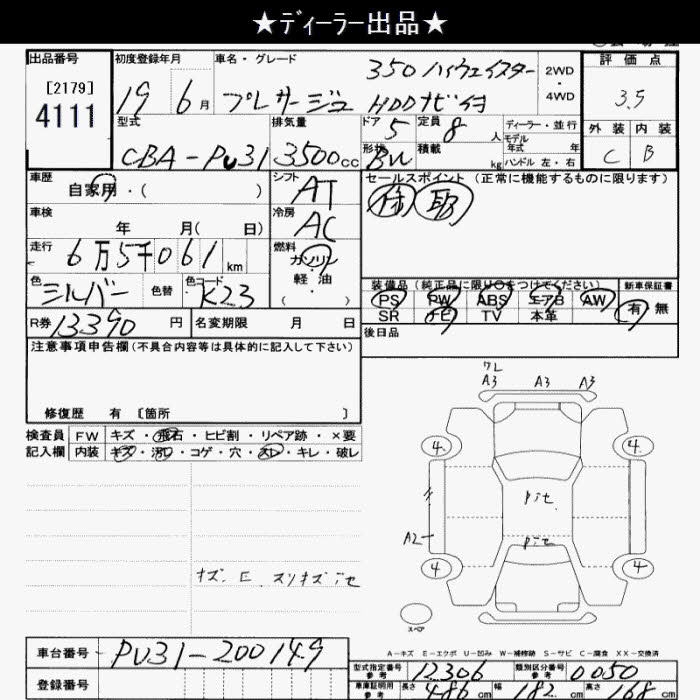 ★ディーラー出品★
出品番号 初度登録年月 車名・グレード 評価点
[2179]
4111
19 6月 プレサージュ 350 ハイウェイスター
HDDナビ付
2WD
4WD
3.5
型式 排気量 ドア 定員 ディーラー・並行 外装 内装
CBA-PU31 3500cc 5 8人 モデル年式 年
形状 積載 kg ハンドル 左・右 C B
車歴 シフト セールスポイント (正常に機能するものに限ります)
自家用・( ) AT
車検 冷房
年 月( 日) AC
走行 燃料
6万5千061km ガソリン・
軽油
( )
色 シルバー 色替 色コード K23
装備品 (純正品に限り○をつけてください) 新車保証書
PS PW ABS エアB AW 有 無
SR TV 本革
R券 13390円 名変期限 月 日 後日品
注意事項申告欄(不具合内容等は具体的に記入して下さい)
修復歴 有 [箇所 ]
検査員 FW キズ・飛石・ヒビ割・リペア跡・×要
記入欄 内装 キズ・汚れ・コゲ・穴・スレ・キレ・破レ
ワレ
A3 A3 A3
4 4
A2
4 4
スペア
A-キズ E-エクボ U-凹み W-補修跡 S-サビ C-腐食 XX-交換済
車台番号 PU31-200149
登録番号
型式指定番号 参考 12306 類別区分番号 参考 0050
車庫証明用 参考 長さ 486cm 幅 182cm 高さ 168cm